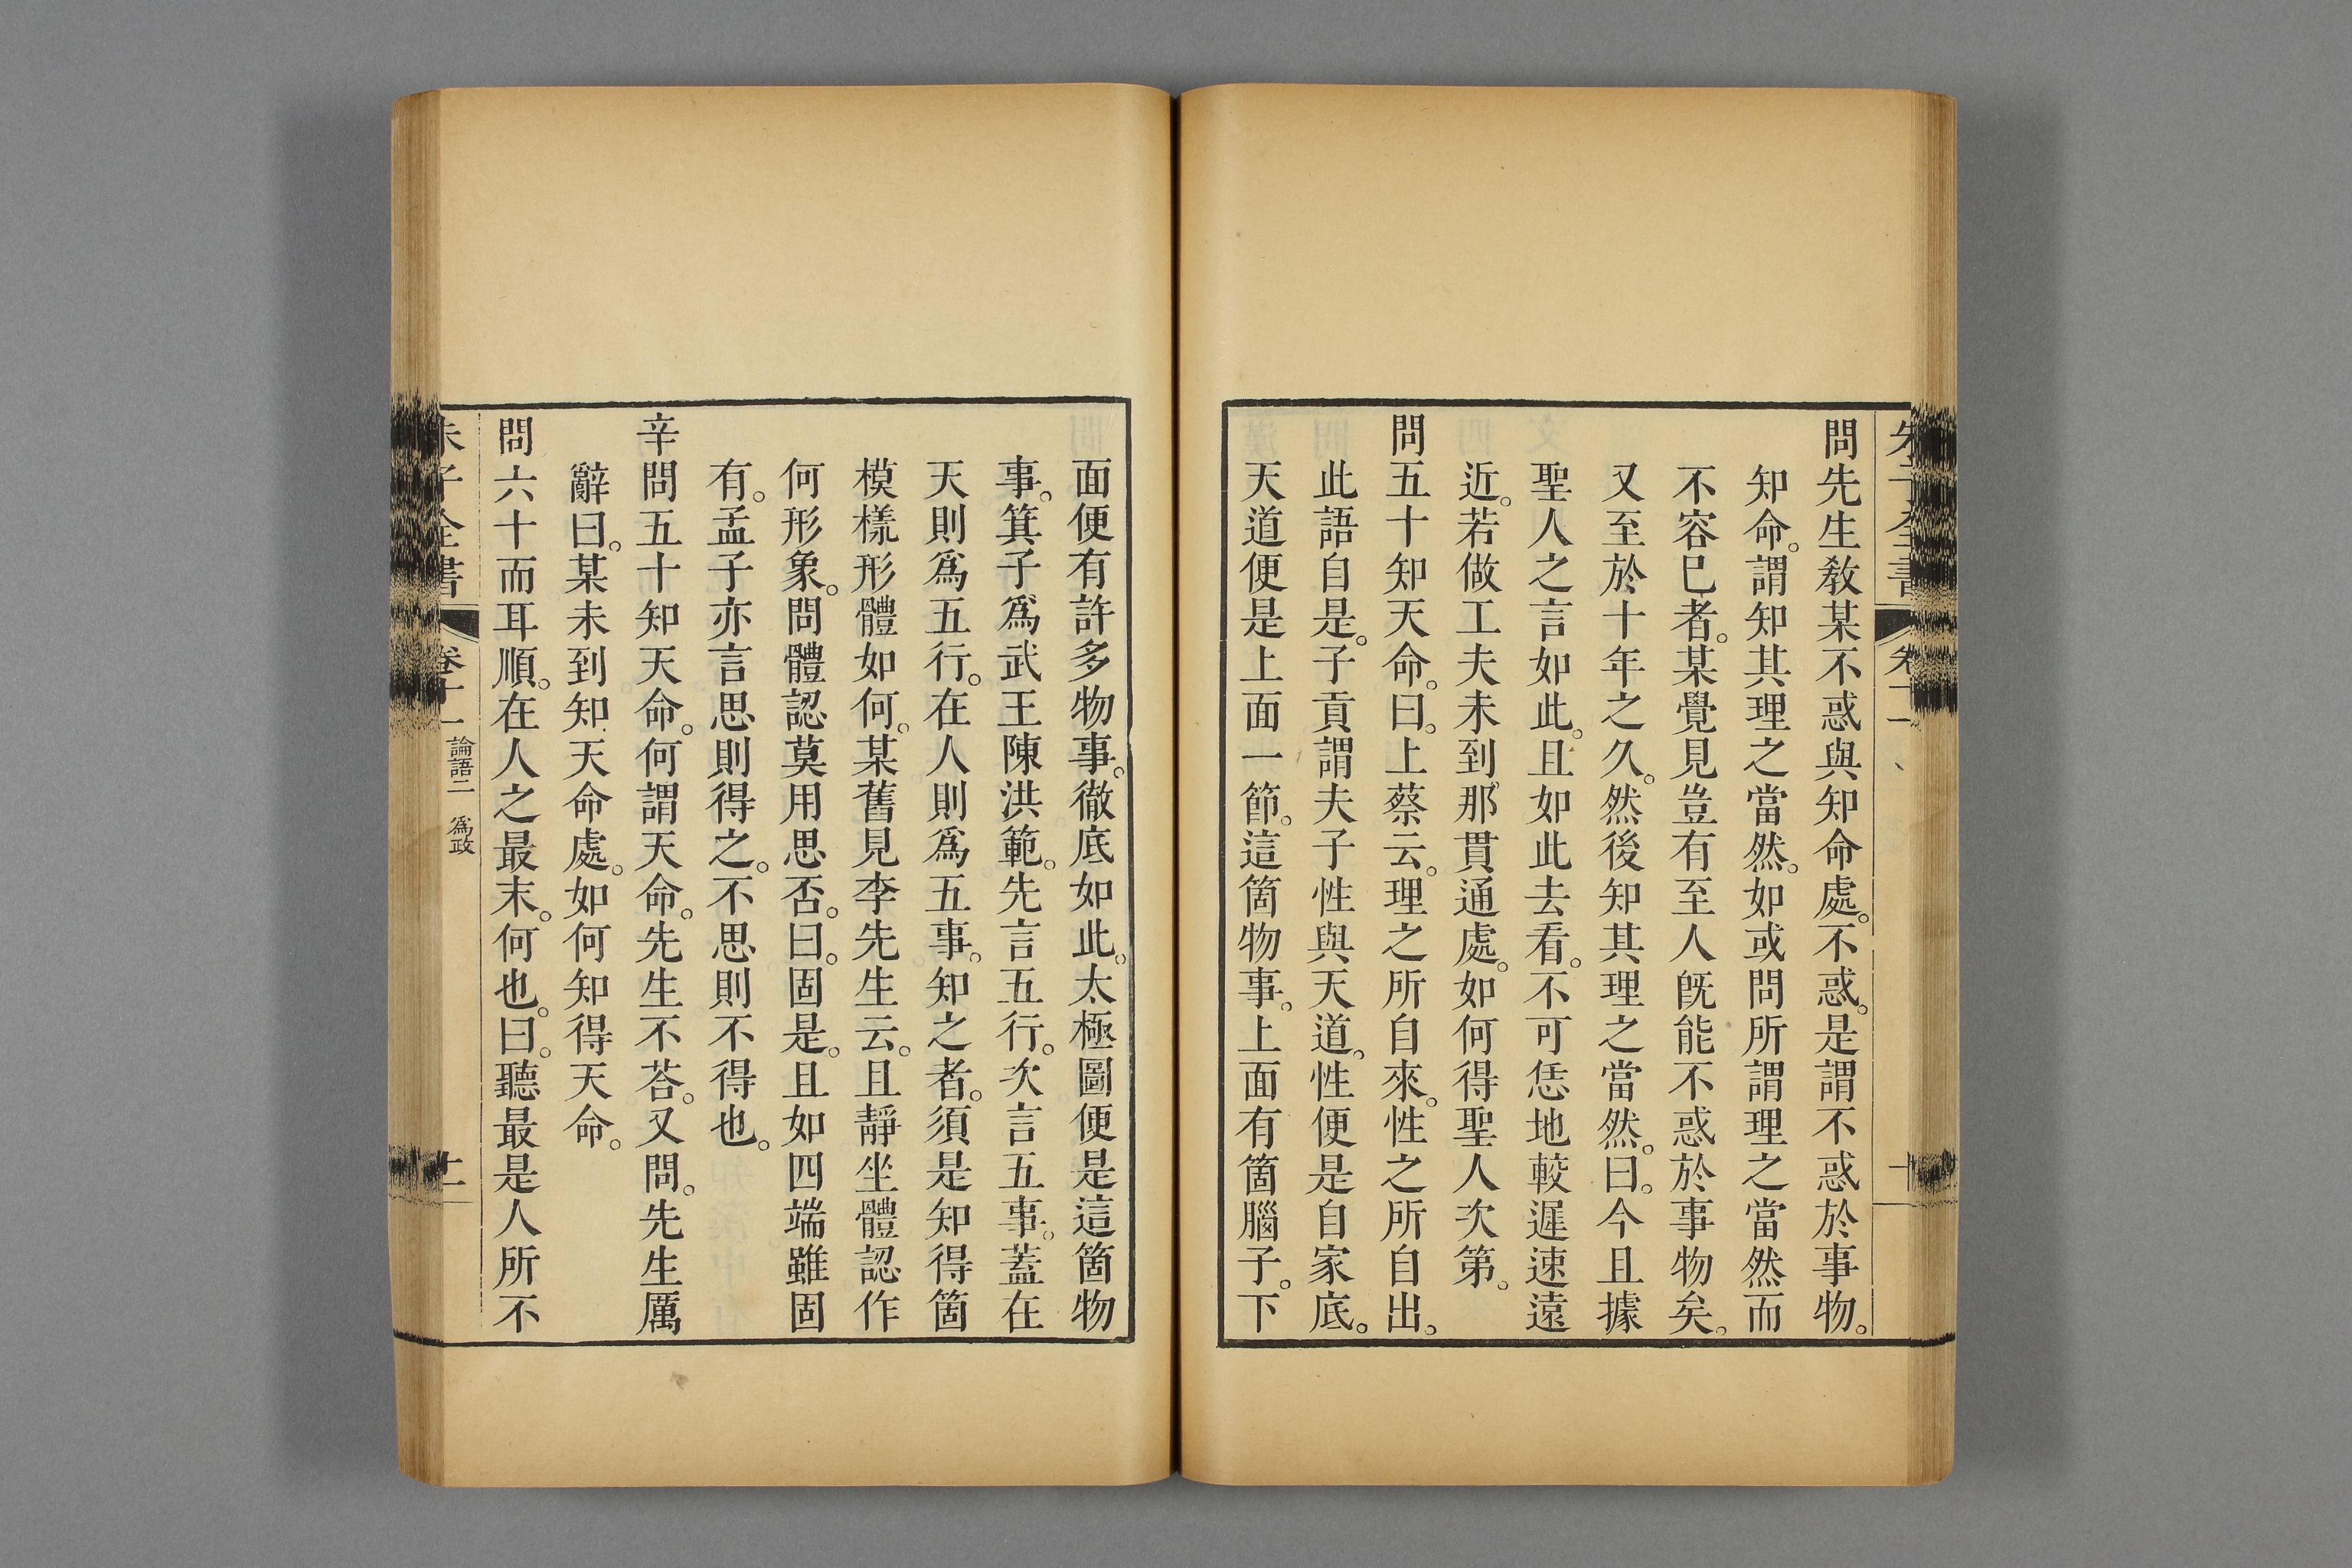 問先生教某不惑與知命處。不惑。是謂不惑於事物。
知命。謂知其理之當然。如或問所謂理之當然而
不容已者。某覺見豈有至人旣能不惑於事物矣。
又至於十年之久。然後知其理之當然。曰。今且據
聖人之言如此。且如此去看。不可恁地較遲速遠
近。若做工夫未到那貫通處。如何得聖人次第。
問五十知天命。曰。上蔡云。理之所自來。性之所自出。
此語自是。子貢謂夫子性與天道。性便是自家底。
天道便是上面一節。這箇物事。上面有箇腦子。下
面便有許多物事。徹底如此。太極圖便是這箇物
事。箕子爲武王陳洪範。先言五行。次言五事。蓋在
天則爲五行。在人則爲五事。知之者。須是知得箇
模樣形體如何。某舊見李先生云。且靜坐體認作
何形象。問體認莫用思否。曰。固是。且如四端雖固
有。孟子亦言思則得之。不思則不得也。
辛問五十知天命。何謂天命。先生不荅。又問。先生厲
辭曰。某未到知天命處。如何知得天命。
問六十而耳順。在人之最末。何也。曰。聽最是人所不
朱子全書 卷十一 論語二 爲政 十一